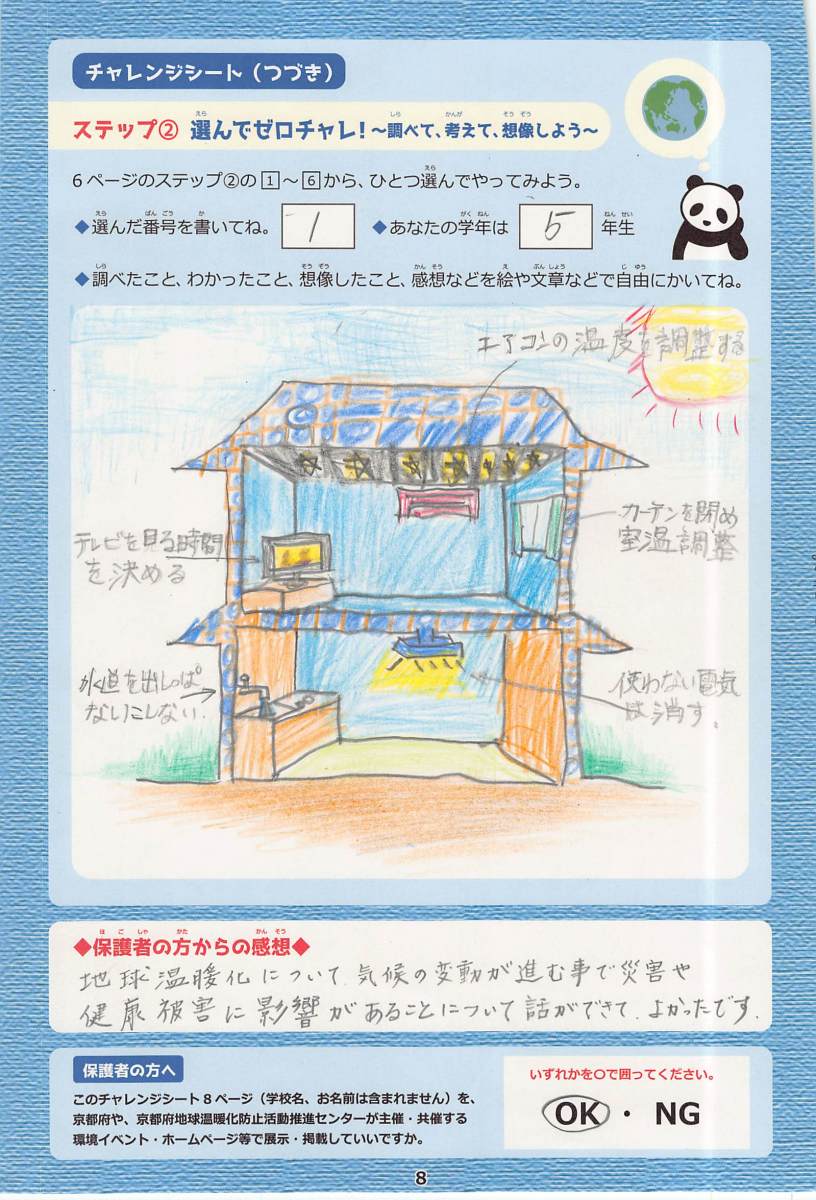 チャレンジシート（つづき）
ステップ② 選んでゼロチャレ！～調べて、考えて、想像しよう～
6ページのステップ②の1～6から、ひとつ選んでやってみよう。
◆選んだ番号を書いてね。 1 ◆あなたの学年は 5 年生
◆調べたこと、わかったこと、想像したこと、感想などを絵や文章などで自由にかいてね。
エアコンの温度を調整する
カーテンを閉め
室温調整
テレビを見る時間
を決める
水道を出しっぱ
なしにしない.
使わない電気
は消す。
◆保護者の方からの感想◆
地球温暖化について、気候の変動が進む事で災害や
健康被害に影響があることについて話ができて、よかったです.
保護者の方へ
このチャレンジシート8ページ（学校名、お名前は含まれません）を、
京都府や、京都府地球温暖化防止活動推進センターが主催・共催する
環境イベント・ホームページ等で展示・掲載していいですか。
いずれかを○で囲ってください。
OK ・ NG
8